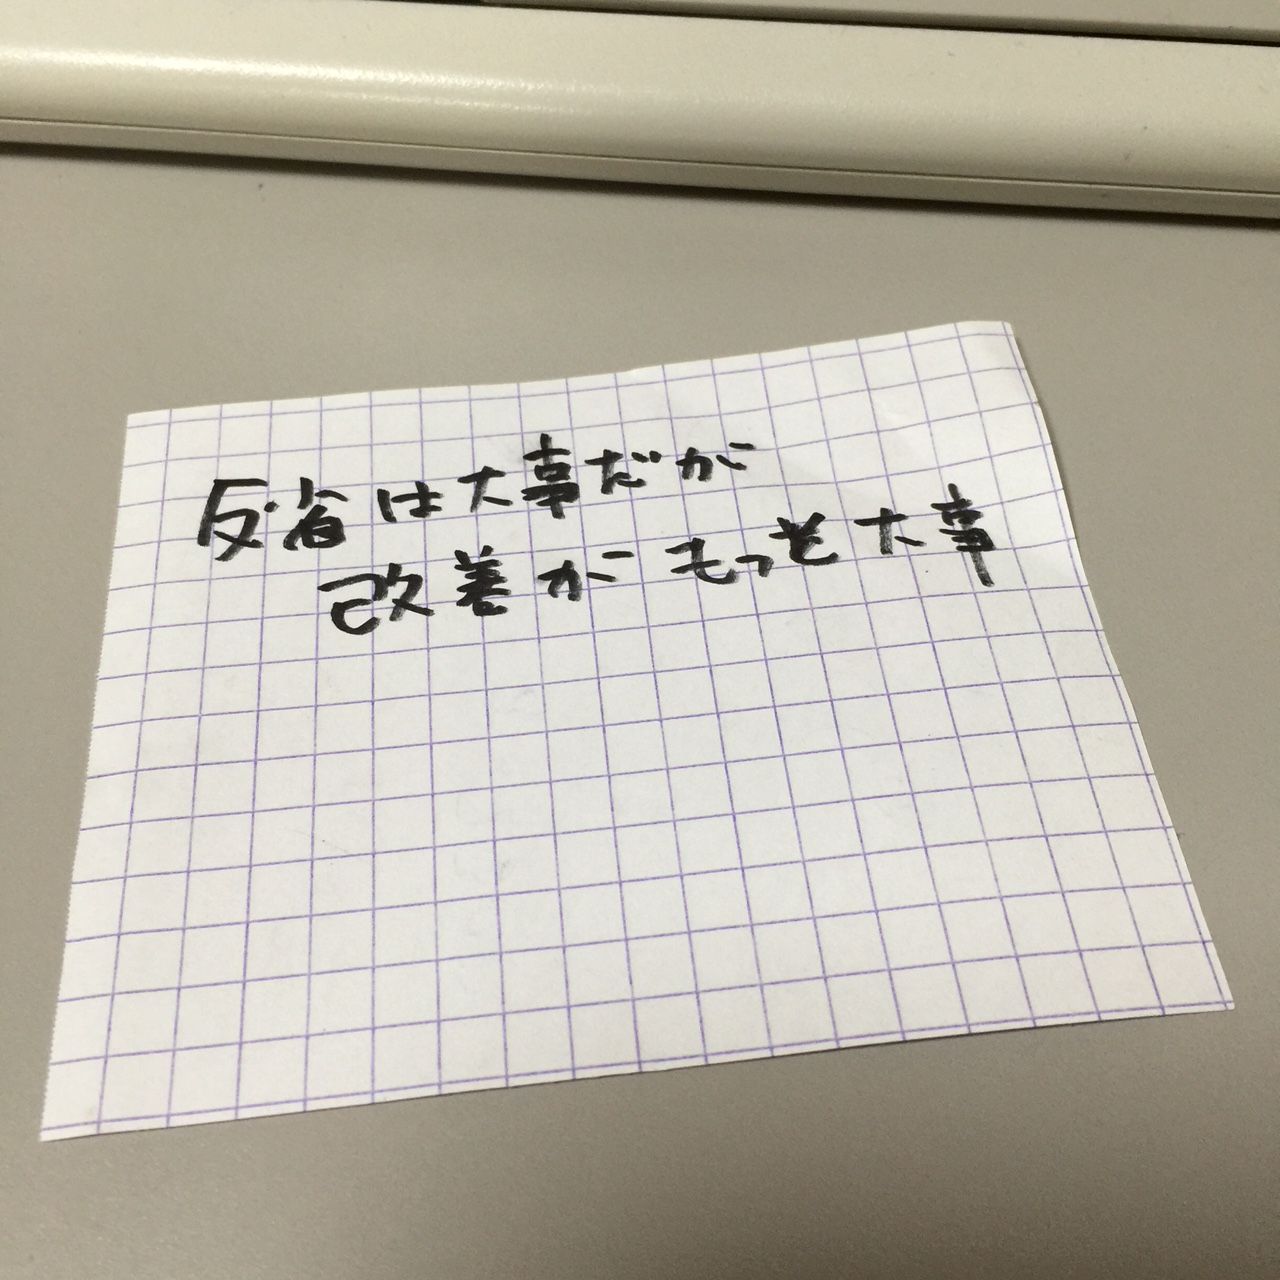 反省は大事だが
改善がもっと大事